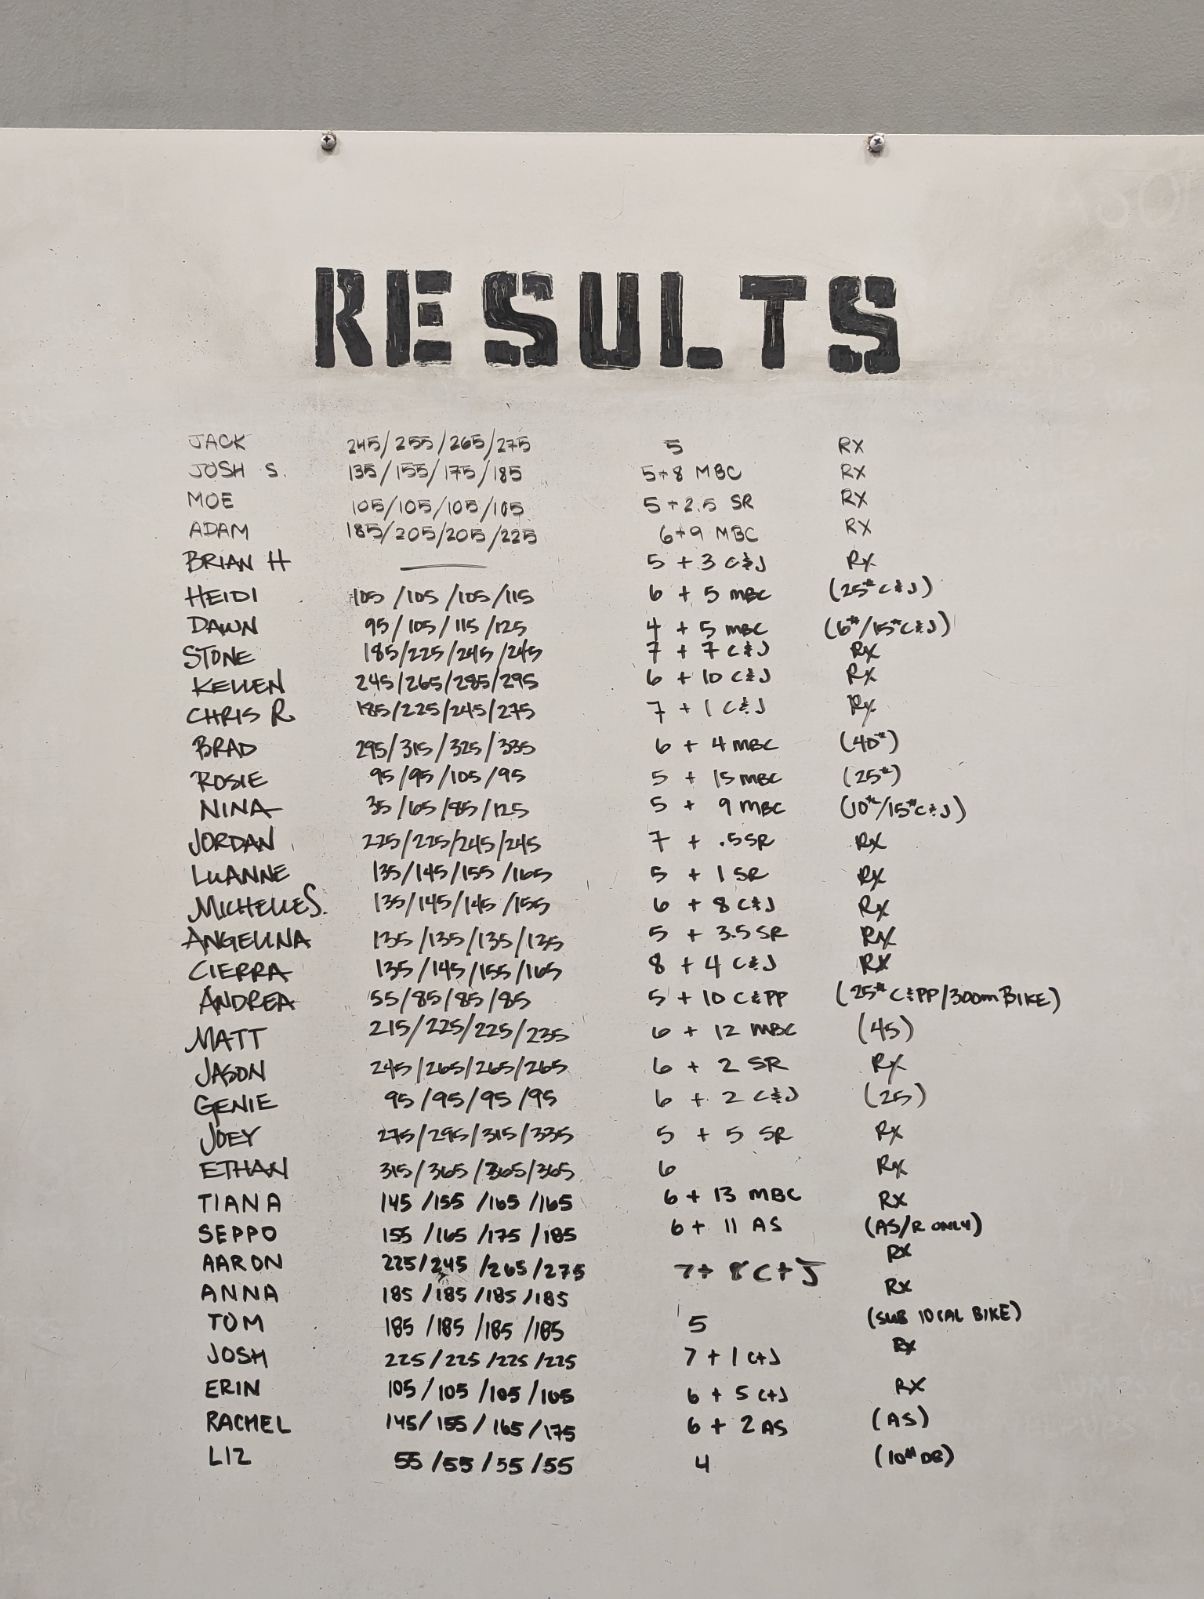 RESULTS
JACK 245/255/265/275 5 RX
JOSH S. 135/155/175/185 5+8 MBC RX
MOE 105/105/105/105 5+2.5 SR RX
ADAM 185/205/205/225 6+9 MBC RX
BRIAN H — 5 + 3 C&J RX
HEIDI 105/105/105/115 6 + 5 MBC (25# C&J)
DAWN 95/105/115/125 4 + 5 MBC (6#/15# C&J)
STONE 185/225/245/245 7 + 7 C&J RX
KELLEN 245/265/285/295 6 + 10 C&J RX
CHRIS R 185/225/245/275 7 + 1 C&J RX
BRAD 295/315/325/335 6 + 4 MBC (40#)
ROSIE 95/95/105/95 5 + 15 MBC (25#)
NINA 35/65/85/125 5 + 9 MBC (10#/15# C&J)
JORDAN 225/225/245/245 7 + .5 SR RX
LUANNE 135/145/155/165 5 + 1 SR RX
MICHELLE S. 135/145/145/155 6 + 8 C&J RX
ANGELINA 135/135/135/135 5 + 3.5 SR RX
CIERRA 135/145/155/165 8 + 4 C&J RX
ANDREA 55/85/85/85 5 + 10 C&PP (25# C&PP/300m BIKE)
MATT 215/225/225/235 6 + 12 MBC (45)
JASON 245/265/265/265 6 + 2 SR RX
GENIE 95/95/95/95 6 + 2 C&J (25)
JOEY 275/295/315/335 5 + 5 SR RX
ETHAN 315/365/365/365 6 RX
TIANA 145/155/165/165 6 + 13 MBC RX
SEPPO 155/165/175/185 6 + 11 AS (AS/R ONLY)
AARON 225/245/265/275 7+ 8 C+J RX
ANNA 185/185/185/185 RX
TOM 185/185/185/185 5 (SUB 10 CAL BIKE)
JOSH 225/225/225/225 7 + 1 C+J RX
ERIN 105/105/105/105 6 + 5 C+J RX
RACHEL 145/155/165/175 6 + 2 AS (AS)
LIZ 55/55/55/55 4 (10# DB)